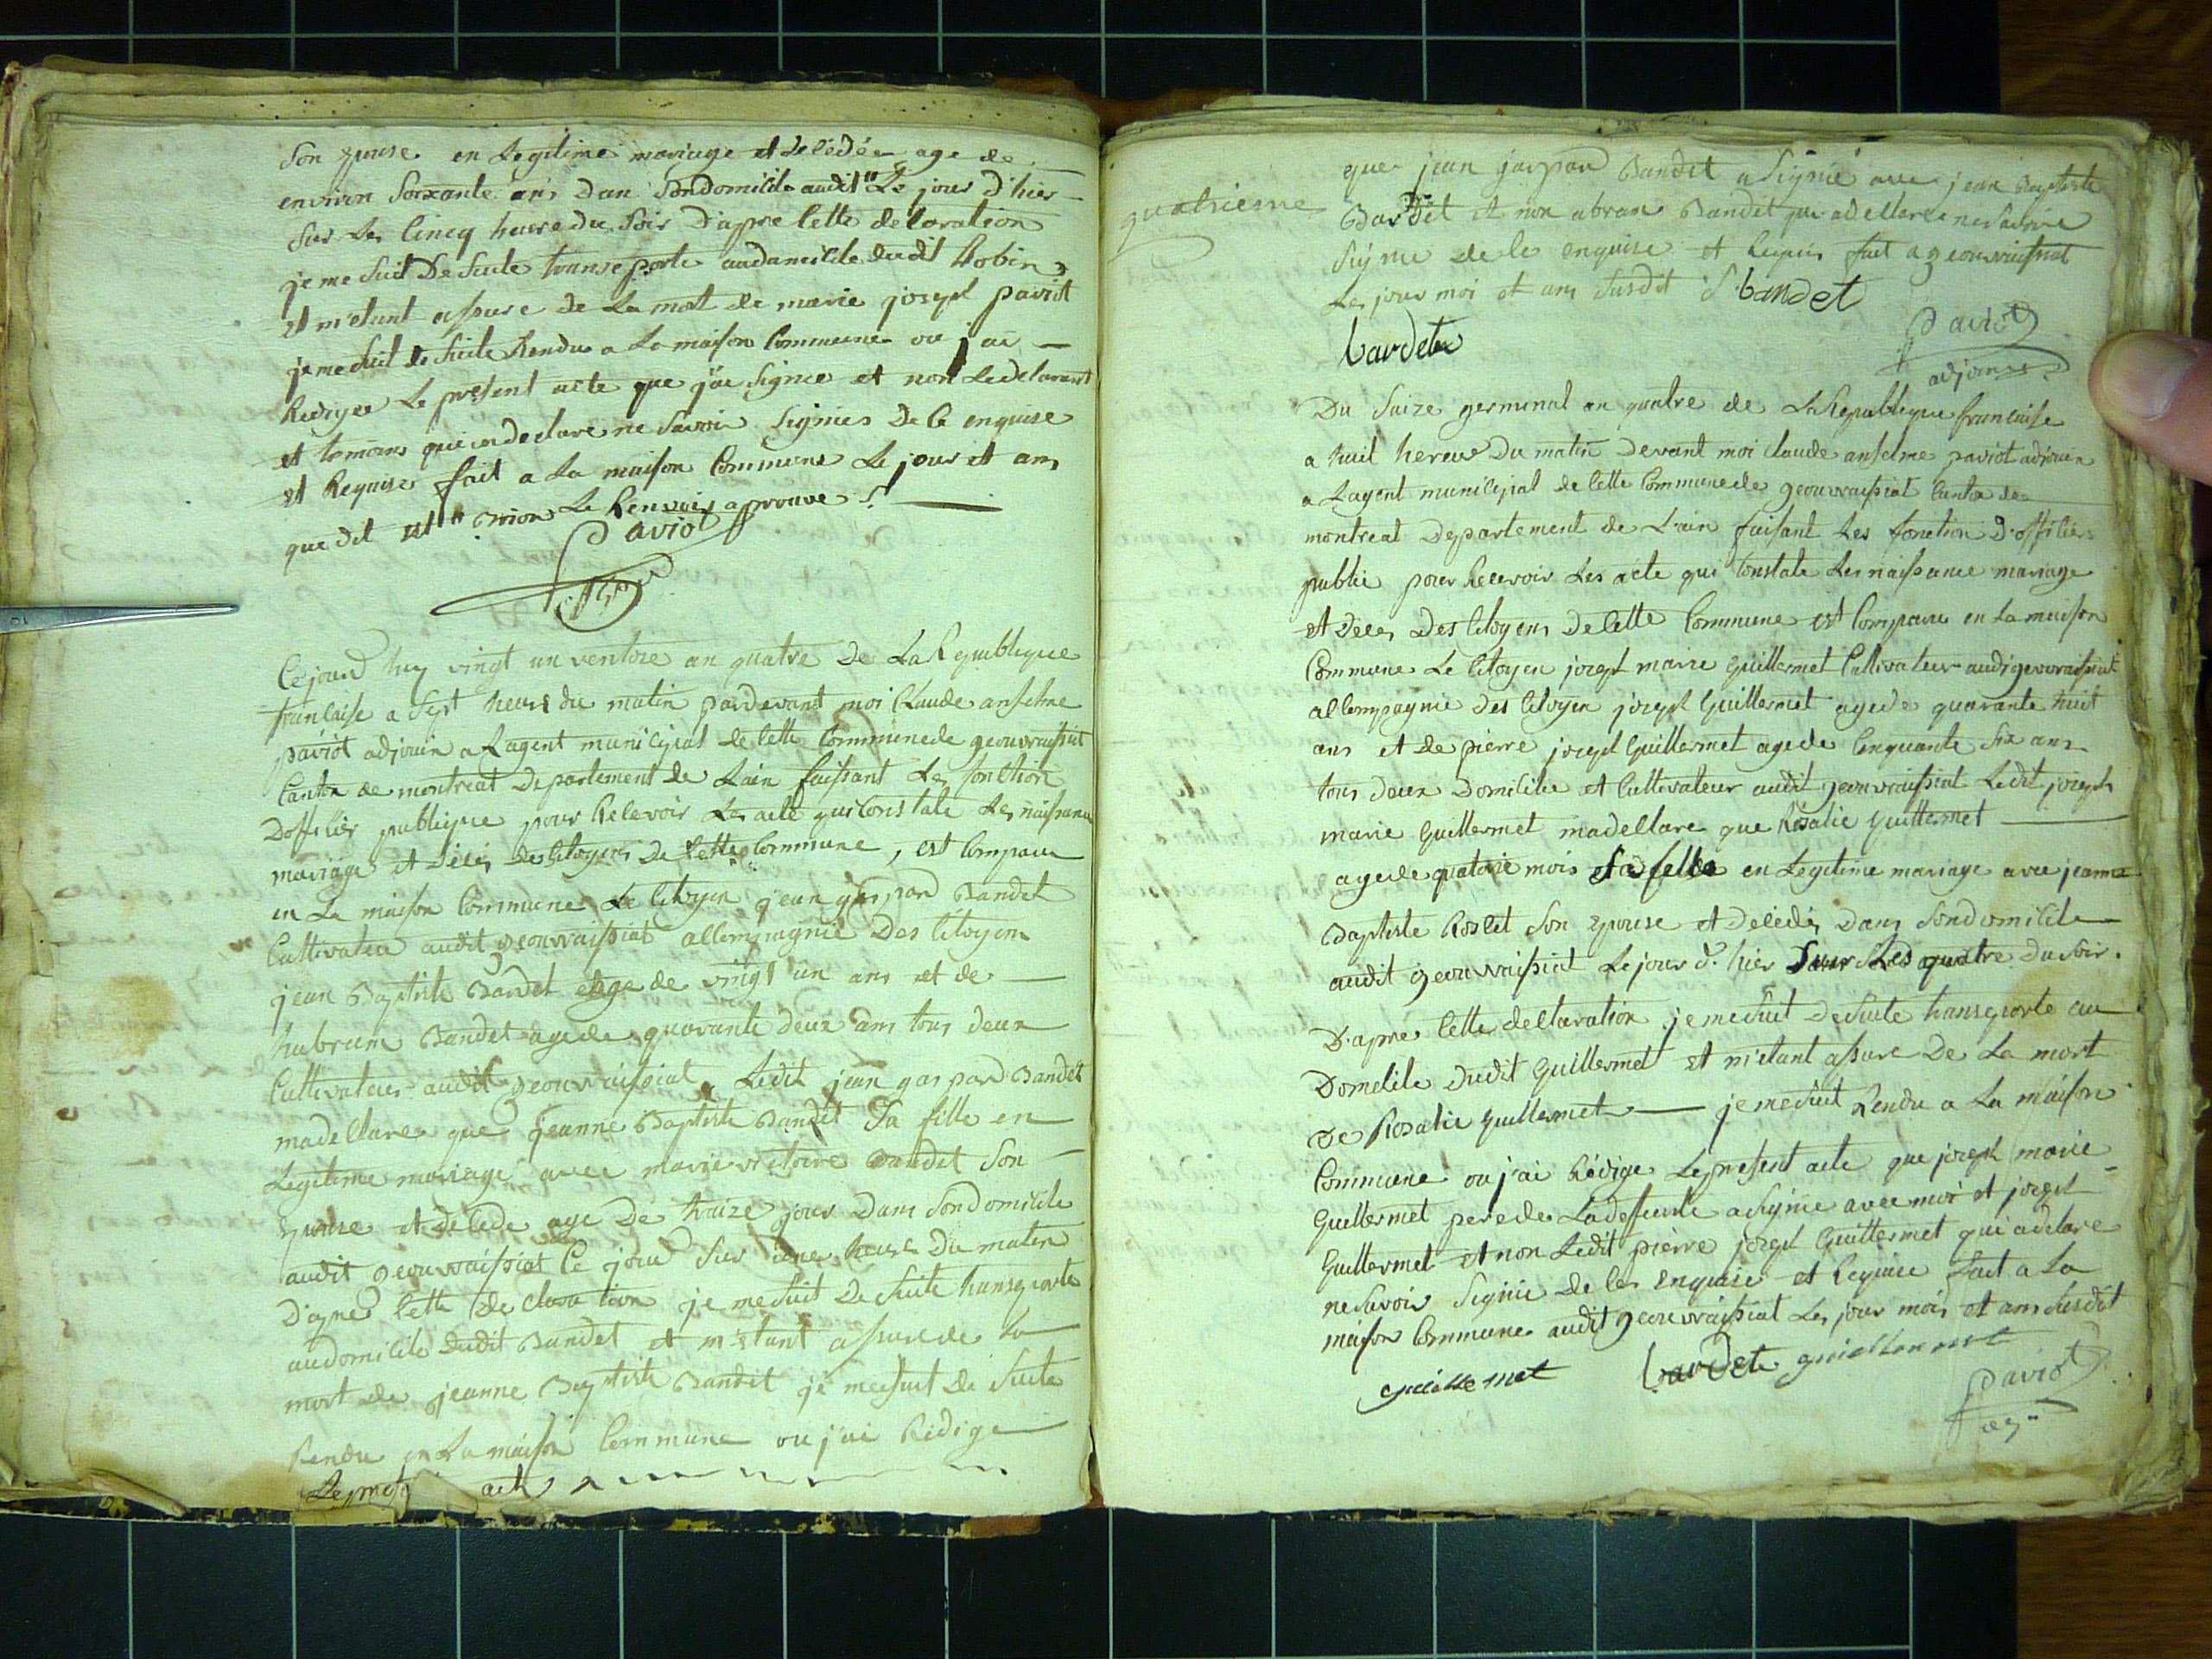 son epouse en Legitime mariage et decédée age de
environ soixante ans dan sondomicile audit " Le jour d'hier
sur Les cincq heure du soir D'apre cette declaration
je me suit De suite transeporte audomicile dudit Robin
et m'etant assure de La mort de marie joseph paviot
je me suit de suite Rendu a La maison Commune ou j'ai
Rediger Le present acte que j'ai signee et non Ledeclarant
et temoins qui on declare ne savoir signer De ce enquise
et Requise fait a La maison Commune Le jour et an
que dit est " Brion Le Renvois aprouve
Paviot
Ce jourd huy vingt un ventose an quatre De La Republique
francaise a sept heurs du matin pardevant moi Claude anselme
paviot adjouin a L'agent municipal de cette Communede geouvraissiat
Canton de montreal Departement de L'ain faissant Les fonction
D'officier publique pour Recevoir Les acte qui Constate Les naissance
mariage et déces des Citoyens De cette Commune, est Comparu
en La maison Commune Le Citoyen jean gaspard Bandet
Cultivateur audit geouvraissiat accompagnie Des Citoyen
jean Baptiste Bardet age de vingt un ans et de
habram Bandet agede quarante deux ans tous deux
Cultivateur audit geouvraissiat, Ledit jean gaspard Bandet
madeclare que jeanne Baptiste Bandet sa fille en
Legitime mariage avec marie victoire Bandet son
epouse et decede age De traize jour Dans sondomicile
audit geouvraissiat Ce jourd sur une heure Du matin
D'apres cette declaration je me suit De suite transporte
audomicile dudit Bandet et m'etant assurede La
mort de jeanne Baptiste Bandet je me suit de suite
Rendu en La maison Commune ou j'ai Redige
Le prese acte
quatrieme
que jean gaspard Bandet a signié avec jean Baptiste
Bardet et non abram Bandet qui a declere ne savoire
signie de ce enquise et Requis fait a geouvraissiat
Les jour moi et an susdit J bandet
bardet
Paviot
adjouin
Du saize germinal an quatre de La Republique francaise
a huit hereus Du matin Devant moi Claude anselme paviot adjouin
a L'agent municipal de cette Communede geouvraissiat Canton de
montreal Departement de L'ain faisant Les fonction D'officier
public pour Recevoir Les acte qui Constate Les naissance mariage
et Deces Des Citoyens De cette Commune est Comparu en La maison
Commune Le Citoyen joseph marie Guillermet Cultivateur audigeouvraissiat
accompagnié Des Citoyen joseph Guillermet agede quarante huit
ans et de pierre joseph Guillermet agede Cinquante six ans
tous deux Domicilie et Cultivateur audit geouvraissiat Ledit joseph
marie Guillermet madeclare que Rosalie Guillermet
agede quatorie mois sa felle en Legitime mariage avec jeanne
Baptiste Roslet son epouse et Decedes Dans sondomicile
audit geouvraissiat Le jour d'hier sur Les quatre Du soir.
D'apre cette declaration je me suit De suite transporte au
Domecile dudit Guillermet et m'etant assure De La mort
De Rosalie Guillermet je me suit Rendu a La maison
Commune ou j'ai Rédige Le present acte que joseph marie
Guillermet perede La deffunte a signie avec moi et joseph
Guillermet et non Ledit pierre joseph Guillermet qui adclare
ne savoir signie de ce enquise et Requise fait a La
maison Commune audit geouvraissiat Les jour mois et an susdit
guillermet bardet guillermet
Paviot